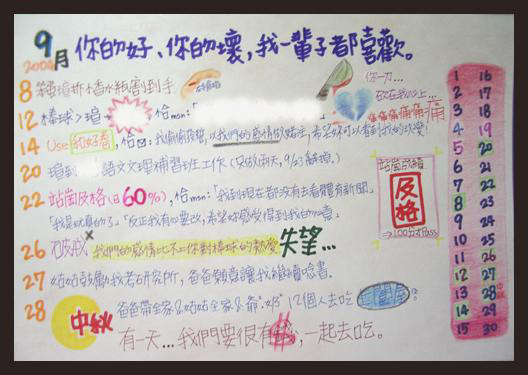 9月 你的好、你的壞，我一輩子都喜歡。
2004
8 笨瑄拆小香水瓶割到手
你一刀…
砍在我心上…
痛痛痛痛痛痛
12 棒球>瑄 恰msn：「
14 Use 和好卷，恰 ：我偷偷夜想，以我們的感情做賭注，希望你可以看到我的改變！
20 瑄到 語文文理補習班工作（只做兩天，9/23辭職。）
22 站崗及格（日60%），恰msn：「我到現在都沒有去看體育新聞」
「我是認真的了」「反正我有心要改，希望妳感受得到我的心意」
站崗成績
及格
→100分才pass
26 破戒 我們的感情比不上你對棒球的熱愛 失望…
27 姑姑鼓勵我考研究所，爸爸願意讓我繼續唸書。
28 中秋 爸爸帶全家&姑姑全家&爺.奶 12個人去吃
有一天…我們要很有錢，一起去吃。
1 16
2 17
3 18
4 19
5 20
6 21
7 22
8 23
9 24
10 25
11 26
12 27
13 28
14 29
15 30